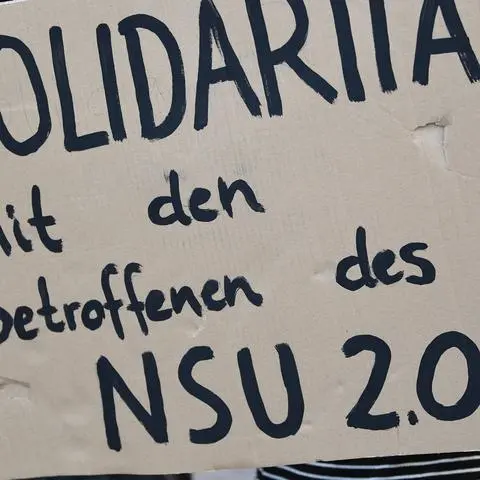 SOLIDARITÄ
mit den
betroffenen des
NSU 2.0